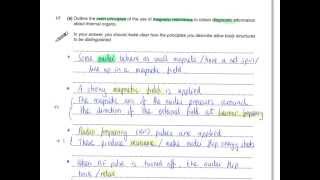 (a) Outline the main principles of the use of magnetic resonance to obtain diagnostic information
about internal organs.
In your answer, you should make clear how the principles you describe allow body structures
to be distinguished
Some nuclei behave as small magnets / have a net spin /
line up in a magnetic field
A strong magnetic field is applied
The magnetic axis of the nuclei precess around
the direction of the external field at Larmor frequency
Radio frequency (RF) pulses are applied
These produce resonance / make nuclei flip energy states
When RF pulse is turned off, the nuclei flip
back / relax